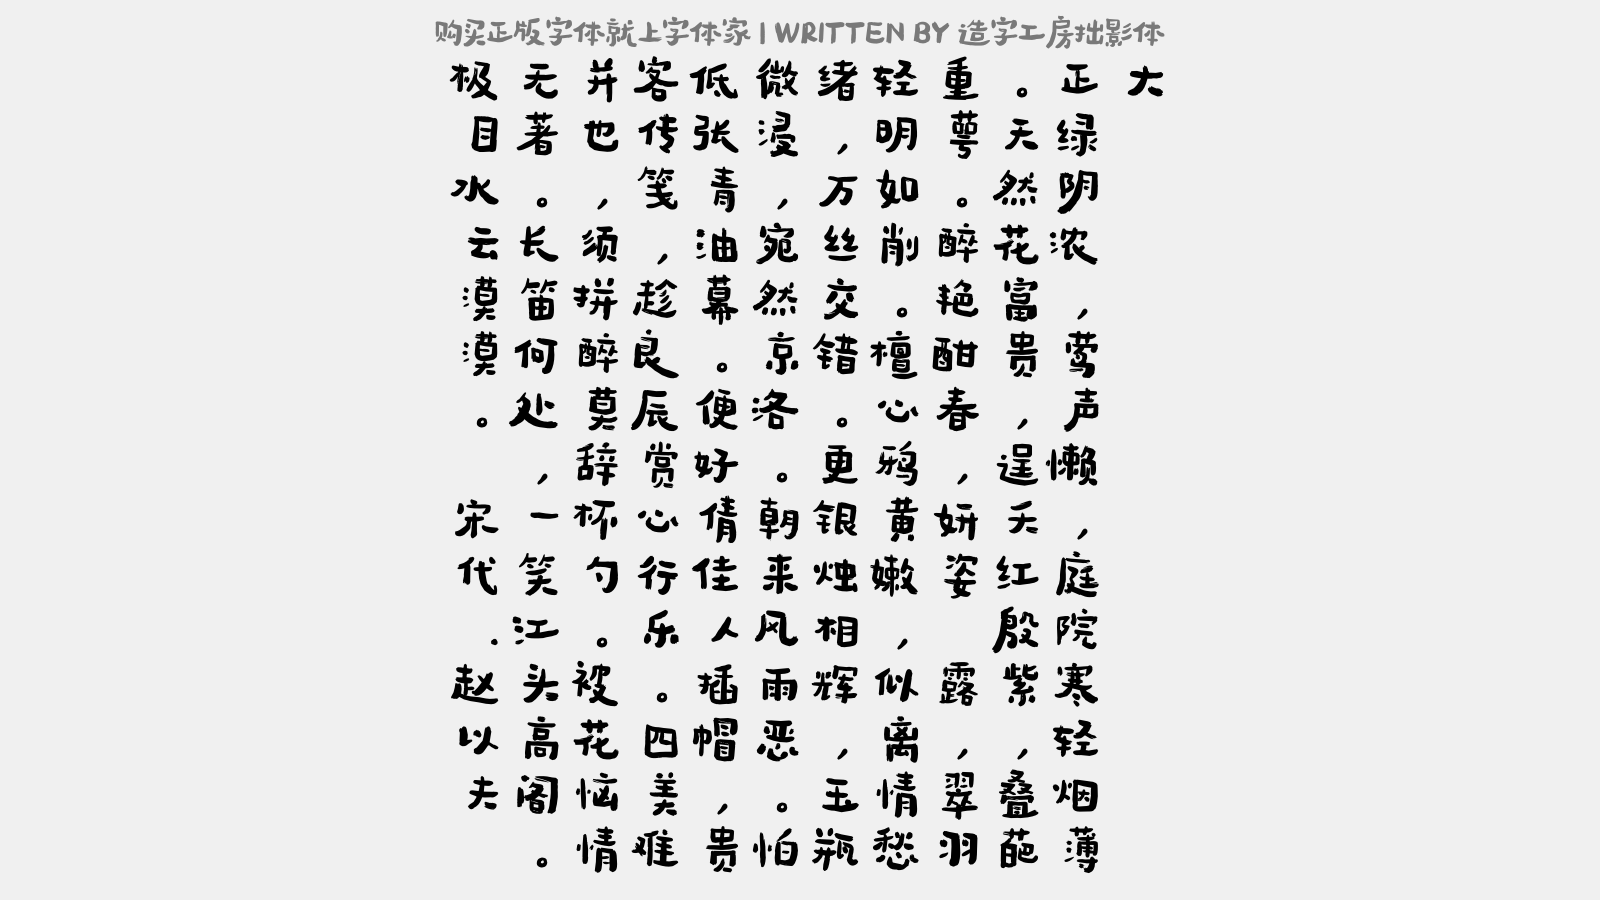 购买正版字体就上字体家 | WRITTEN BY 造字工房拙影体
大
正绿阴浓，莺声懒，庭院寒轻烟薄
。天然花富贵，逞夭红殷紫，叠葩
重萼。醉艳酣春，妍姿 露，翠羽
轻明如削。檀心鸦黄嫩，似离情愁
绪，万丝交错。更银烛相辉，玉瓶
微浸，宛然京洛。朝来风雨恶。怕
低张青油幕。便好倩佳人插帽，贵
客传笺，趁良辰赏心行乐。四美难
并也，须拼醉莫辞杯勺。被花恼情
无著。长笛何处，一笑江头高阁。
极目水云漠漠。 宋代.赵以夫